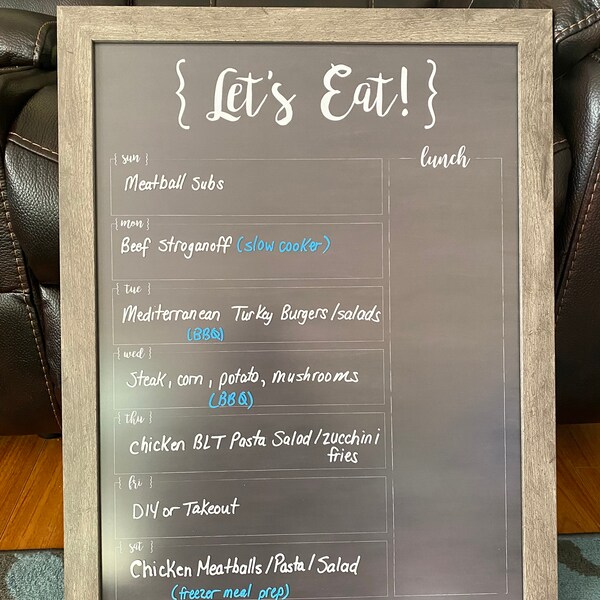 { Let's Eat! }
{ sun }
Meatball Subs
{ mon }
Beef Stroganoff (slow cooker)
{ tue }
Mediterranean Turkey Burgers/salads
(BBQ)
{ wed }
Steak, corn, potato, mushrooms
(BBQ)
{ thu }
Chicken BLT Pasta Salad/zucchini
fries
{ fri }
DIY or Takeout
{ sat }
Chicken Meatballs/Pasta/Salad
(freezer meal prep)
lunch